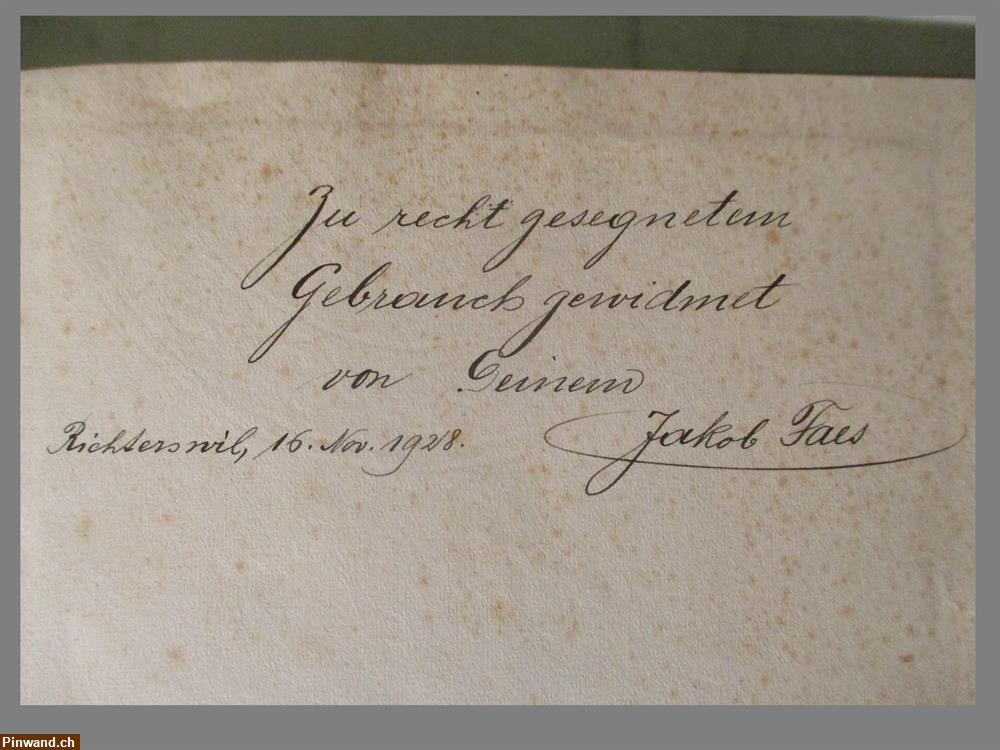 Zu recht gesegnetem
Gebrauch gewidmet
von Deinem
Jakob Faes
Richterswil, 16. Nov. 1928.
Pinwand.ch